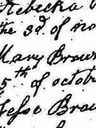 Rebecka
the 3d. of no
Mary Brown
5th of octobe
Jesse Brow